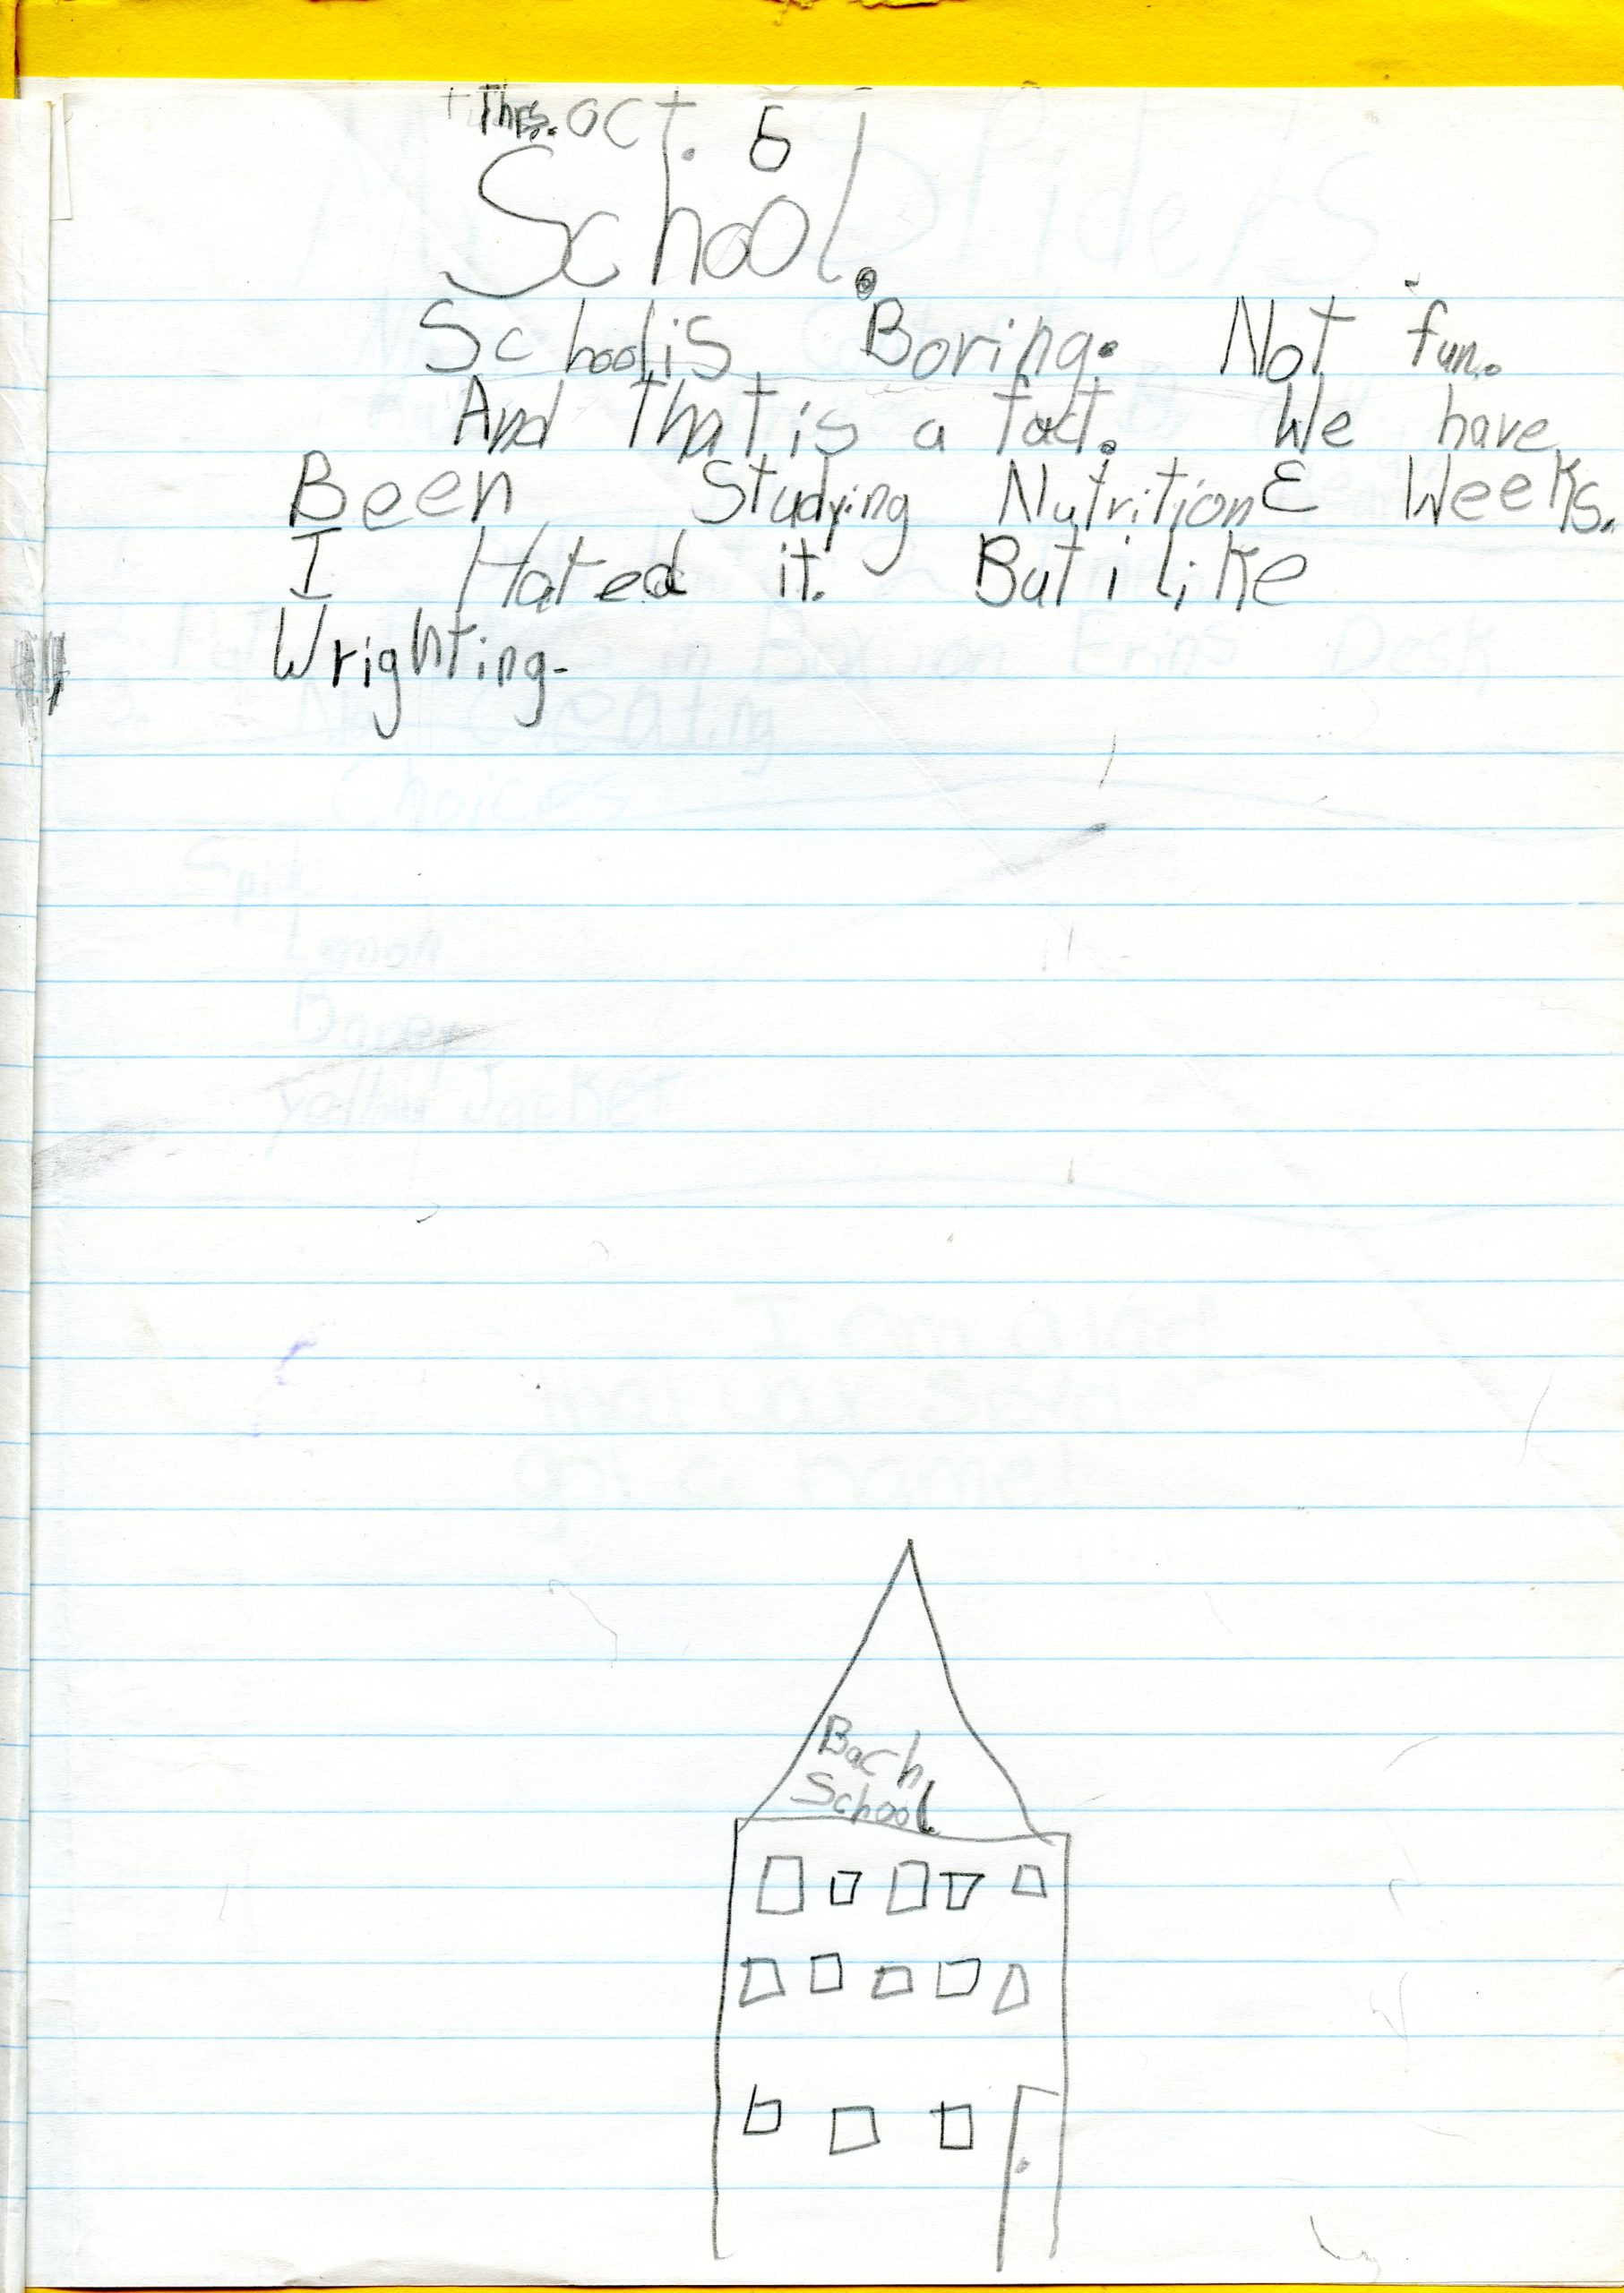 Thrs. oct. 6
School.
School is Boring. Not fun.
And that is a fact. We have
Been Studying Nutrition 3 Weeks.
I Hated it. But i like
Wrighting.
Bach
School